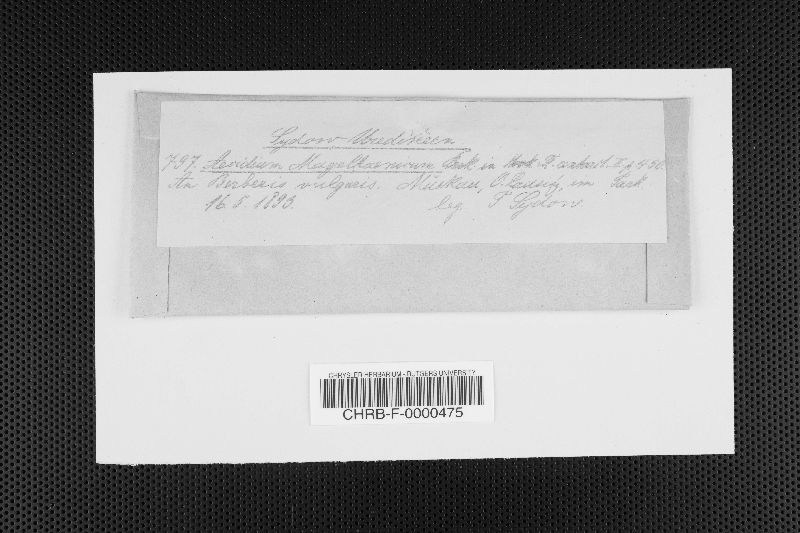 Sydow Uredineen
797. Aecidium Magellanicum Berk. in Hook. Fl. antarct. II. p. 450.
An Berberis vulgaris. Muskau, O. Lausitz, im Park
16.5.1893. leg. P. Sydow.
CHRYSLER HERBARIUM - RUTGERS UNIVERSITY
CHRB-F-0000475